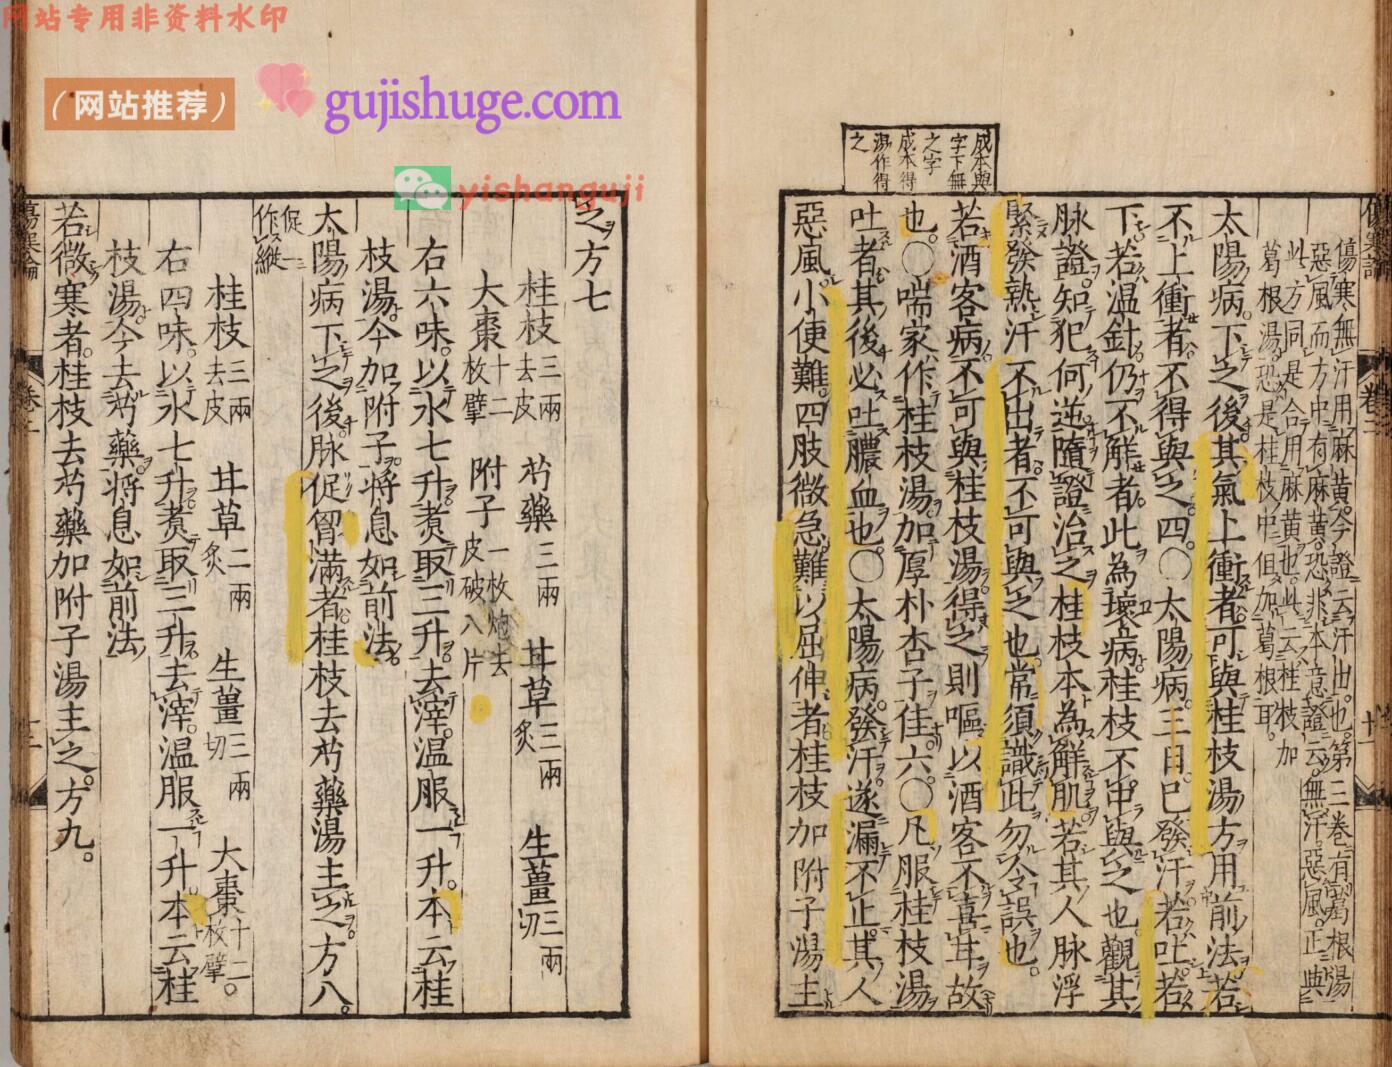 网站专用非资料水印
（网站推荐）
gujishuge.com
yishanguji
成本與
字下無
之字
成本得
湯作得
之
傷寒論
卷二
十一
傷寒無汗用麻黃今證云汗出也第三卷有葛根湯
惡風而方中有麻黃恐非本意證云無汗惡風正與
此方同是合用麻黃也此云桂枝加
葛根湯恐是桂枝中但加葛根耳
太陽病下之後其氣上衝者可與桂枝湯方用前法若
不上衝者不得與之四○太陽病三日已發汗若吐若
下若温針仍不解者此為壞病桂枝不中與之也觀其
脉證知犯何逆隨證治之桂枝本為解肌若其人脉浮
緊發熱汗不出者不可與之也常須識此勿令誤也
若酒客病不可與桂枝湯得之則嘔以酒客不喜甘故
也○喘家作桂枝湯加厚朴杏子佳六○凡服桂枝湯
吐者其後必吐膿血也○太陽病發汗遂漏不止其人
惡風小便難四肢微急難以屈伸者桂枝加附子湯主
之方七
桂枝三兩去皮 芍藥三兩 甘草三兩炙 生薑三兩切
大棗十二枚擘 附子一枚炮去皮破八片
右六味以水七升煮取三升去滓温服一升本云桂
枝湯今加附子將息如前法
太陽病下之後脉促胷滿者桂枝去芍藥湯主之方八
促一作縱
桂枝三兩去皮 甘草二兩炙 生薑三兩切 大棗十二枚擘
右四味以水七升煮取三升去滓温服一升本云桂
枝湯今去芍藥將息如前法
若微寒者桂枝去芍藥加附子湯主之方九
傷寒論
卷二
十二